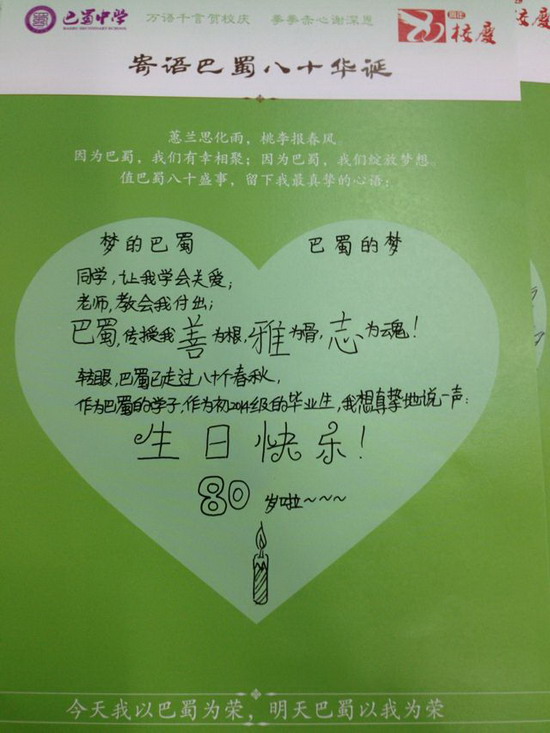 巴蜀中学 万语千言贺校庆 拳拳赤心谢深恩 80 校庆
BASHU SECONDARY SCHOOL
寄语巴蜀八十华诞
蕙兰思化雨，桃李报春风。
因为巴蜀，我们有幸相聚；因为巴蜀，我们绽放梦想。
值巴蜀八十盛事，留下我最真挚的心语：
梦的巴蜀 巴蜀的梦
同学，让我学会关爱；
老师，教会我付出；
巴蜀，传授我善为根，雅为骨，志为魂！
转眼，巴蜀已走过八十个春秋，
作为巴蜀的学子，作为初2014级的毕业生，我想真挚地说一声：
生日快乐！
80 岁啦~~~
今天我以巴蜀为荣，明天巴蜀以我为荣